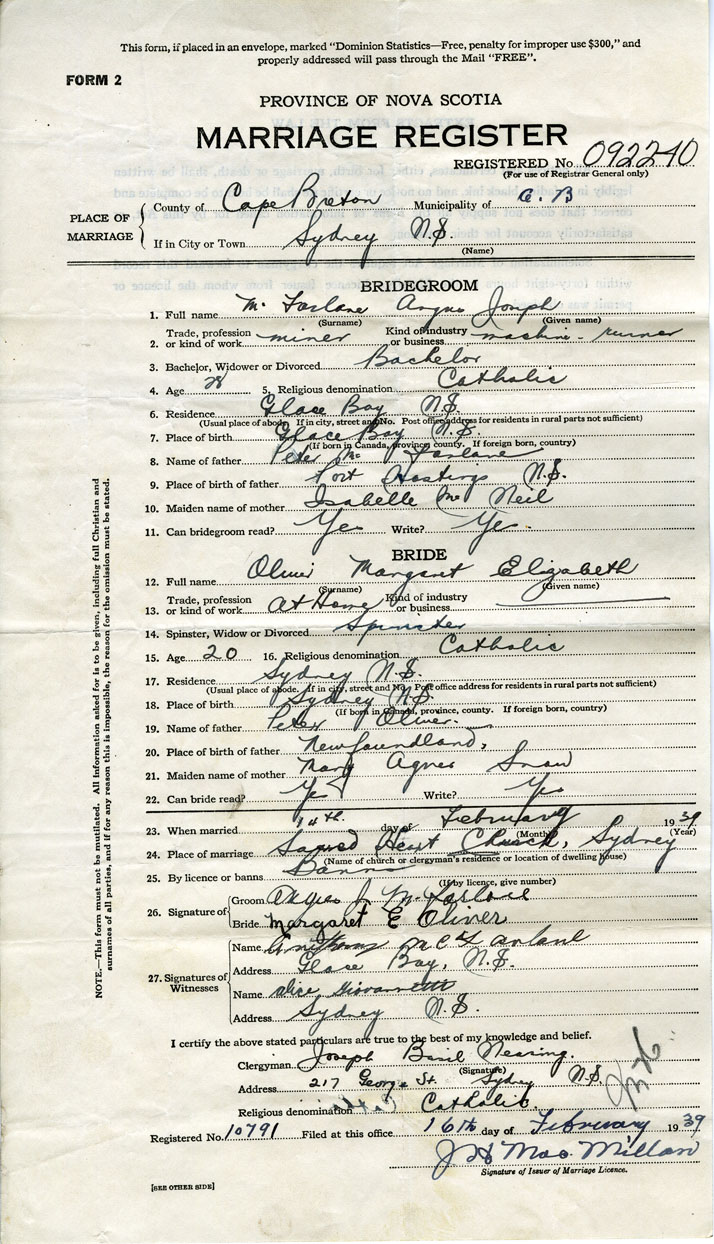 This form, if placed in an envelope, marked "Dominion Statistics—Free, penalty for improper use $300," and
properly addressed will pass through the Mail "FREE".
FORM 2
PROVINCE OF NOVA SCOTIA
MARRIAGE REGISTER
REGISTERED No. 092240
(For use of Registrar General only)
PLACE OF MARRIAGE
County of Cape Breton Municipality of C. B
If in City or Town Sydney N.S.
(Name)
BRIDEGROOM
1. Full name Mc Farlane Angus Joseph
(Surname) (Given name)
2. Trade, profession or kind of work miner Kind of industry or business machine-runner
3. Bachelor, Widower or Divorced Bachelor
4. Age 28 5. Religious denomination Catholic
6. Residence Glace Bay N.S.
(Usual place of abode. If in city, street and No. Post office address for residents in rural parts not sufficient)
7. Place of birth Glace Bay N.S.
(If born in Canada, province, county. If foreign born, country)
8. Name of father Peter Mc Farlane
9. Place of birth of father Port Hastings N.S.
10. Maiden name of mother Isabelle Mc Neil
11. Can bridegroom read? Yes Write? Yes
BRIDE
12. Full name Oliver Margaret Elizabeth
(Surname) (Given name)
13. Trade, profession or kind of work at Home Kind of industry or business
14. Spinster, Widow or Divorced Spinster
15. Age 20 16. Religious denomination Catholic
17. Residence Sydney N.S.
(Usual place of abode. If in city, street and No. Post office address for residents in rural parts not sufficient)
18. Place of birth Sydney N.S.
(If born in Canada, province, county. If foreign born, country)
19. Name of father Peter Oliver.
20. Place of birth of father Newfoundland,
21. Maiden name of mother Mary Agnes Snow
22. Can bride read? Yes Write? Yes
23. When married 14th. day of February 1939
(Month) (Year)
24. Place of marriage Sacred Heart Church, Sydney
(Name of church or clergyman's residence or location of dwelling house)
25. By licence or banns Banns
(If by licence, give number)
26. Signature of
Groom Angus J. McFarlane
Bride Margaret E Oliver
27. Signatures of Witnesses
Name Anthony McFarlane
Address Glace Bay, N.S.
Name Alice Giovannetti
Address Sydney N.S.
I certify the above stated particulars are true to the best of my knowledge and belief.
Clergyman Joseph Basil Nearing.
(Signature)
Address 217 George St. Sydney N.S.
Religious denomination Catholic.
Registered No. 10791 Filed at this office 16th day of February 1939
J H MacMillan
Signature of Issuer of Marriage Licence.
[SEE OTHER SIDE]
NOTE.—This form must not be mutilated. All information asked for is to be given, including full Christian and
surnames of all parties, and if for any reason this is impossible, the reason for the omission must be stated.